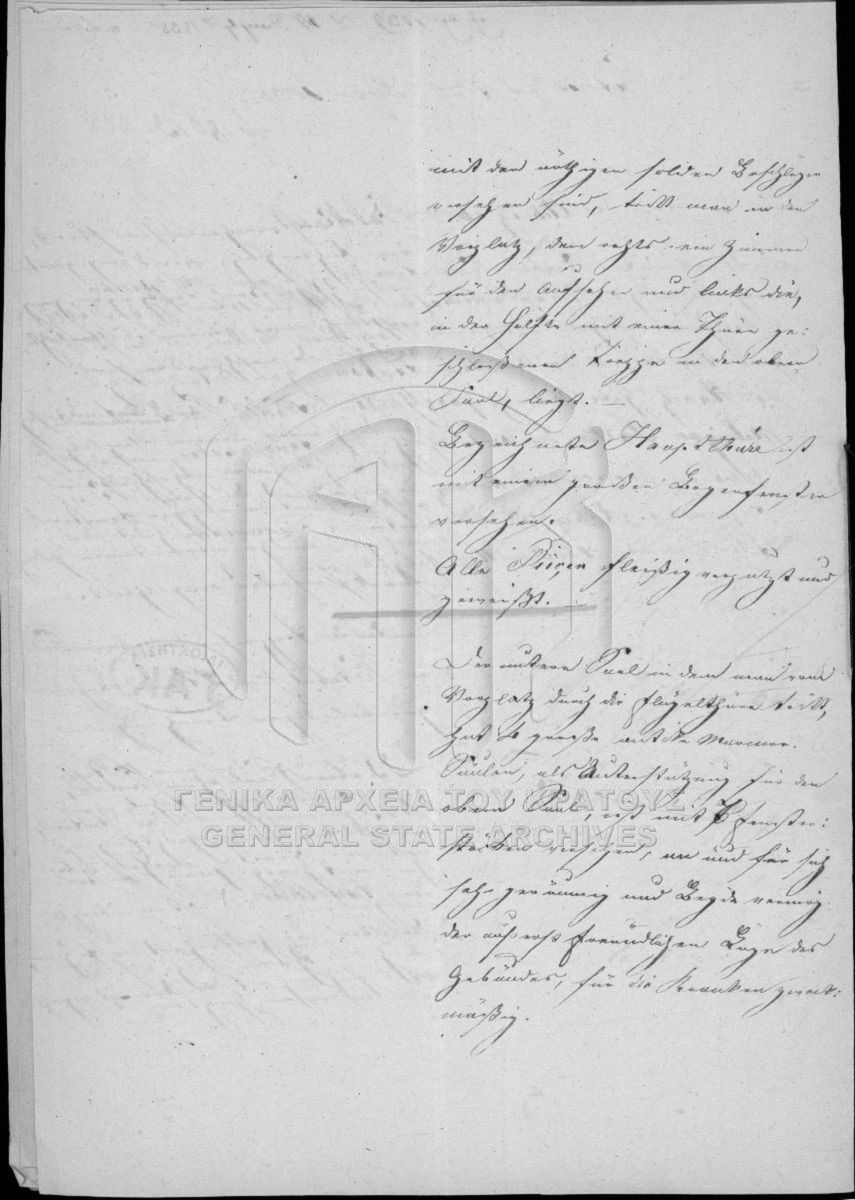 mit den nöthigen soliden Beschlägen
versehen sind, tritt man in den
Vorplatz, dem rechts ein Zimmer
für den Aufseher und links die,
in der Hälfte mit einer Thüre ge:
schloßenen Treppe in den obern
Saal, liegt. —
Bezeichnete Hauptthüre ist
mit einem großen Bogenfenster
versehen.
Alle Piéçen fleißig verputzt und
geweißt. —
Der untere Saal in dem man vom
Vorplatz durch die Flügelthüre tritt,
hat große antike Marmor.
Säulen, als Unterstützung für den
obern Saal, ist mit Fenster:
stöcken versehen, an und für sich
sehr geräumig und Beyde vermög
der äußerst freundlichen Lage des
Gebäudes, für die Kranken zweck:
mäßig.
ΓΕΝΙΚΑ ΑΡΧΕΙΑ ΤΟΥ ΚΡΑΤΟΥΣ
GENERAL STATE ARCHIVES
ΓΑΚ